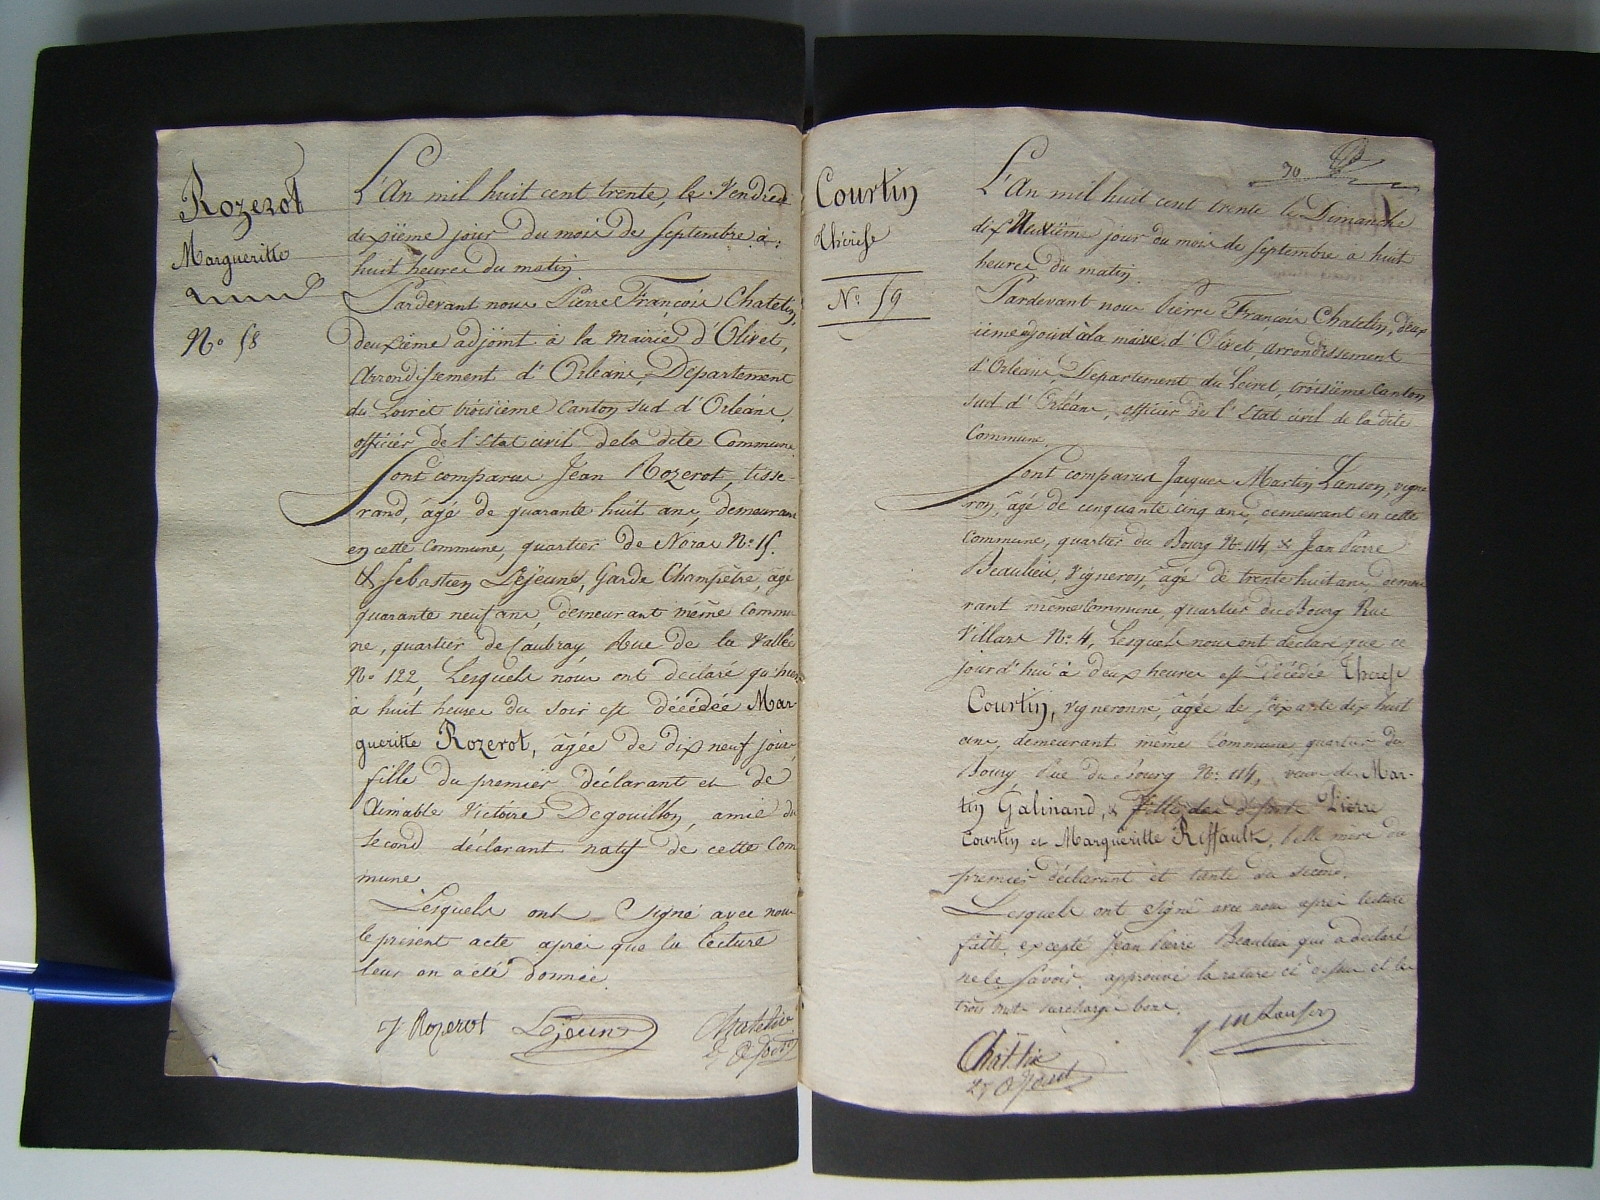 Rozerot
Margueritte
N° 58
L'An mil huit cent trente, le Vendredi
dixieme jour du mois de Septembre à
huit heures du matin.
Pardevant nous Pierre François Chatelin,
deuxième adjoint à la mairie d'Olivet,
Arrondissement d'Orléans, Département
du Loiret troisième Canton sud d'Orléans,
officier de l'Etat civil de la dite Commune
Sont comparus Jean Rozerot, tisse-
rand, âgé de quarante huit ans, demeurant
en cette Commune, quartier de N° 15.
& Sebastien Lejeune, Garde Champêtre, âgé
quarante neuf ans, demeurant même Commu-
ne, quartier de Caubray Rue de la Vallée
N° 122, Lesquels nous ont déclaré qu'hier
à huit heures du soir est décédée Mar-
gueritte Rozerot, âgée de dix neuf jours
fille du premier déclarant et de
Aimable Victoire Degouillon, amie du
second déclarant natif de cette Com
mune
Lesquels ont signé avec nous
le présent acte après que la lecture
leur en a été donnée.
J Rozerot Lejeune Chatelin
Courtin
Thérèse
N° 59
70
L'An mil huit cent trente le Dimanche
dix Neuvième jour du mois de Septembre à huit
heures du matin.
Pardevant nous Pierre François Chatelin, deux
ième adjoint à la mairie d'Olivet, arrondissement
d'Orléans, Departement du Loiret, troisième Canton
sud d'Orléans, officier de l'Etat civil de la dite
Commune.
Sont comparus Jacques Martin Lanson, vigne
ron, âgé de cinquante cinq ans, demeurant en cette
Commune, quartier du Bourg N° 114, & Jean Pierre
Beaulieu, Vigneron, âgé de trente huit ans demeu
rant même Commune, quartier du Bourg Rue
Villars N° 4, Lesquels nous ont déclaré que ce
jourd'hui à deux heures est décédée Therese
Courtin, vigneronne, âgée de soixante dix huit
ans, demeurant même Commune quartier du
Bourg, Rue du Bourg N° 114, veuve de Mar-
tin Galinand, & fille de défunt Pierre
Courtin et Margueritte Riffault, belle mère du
premier déclarant et tante du second.
Lesquels ont signé avec nous après lecture
faite, excepté Jean Pierre Beaulieu qui a déclaré
ne le savoir. approuvé la rature ci dessus et les
trois mots surchargés bons.
J M Lanson
Chatelin